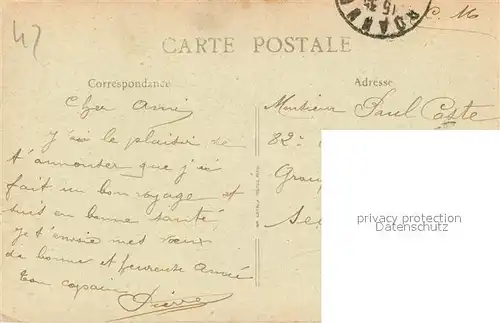 47
C. M
ROANNE
15 35
CARTE POSTALE
Correspondance
Adresse
Cher Ami
j'ai le plaisir de
t'annonter que j'ai
fait un bon voyage et
suis en bonne santé
je t'envoie mes vœux
de bonne et heureuse Année
ton copain
Pierre
Monsieur Paul Coste
82e
Grou
privacy protection
Datenschutz